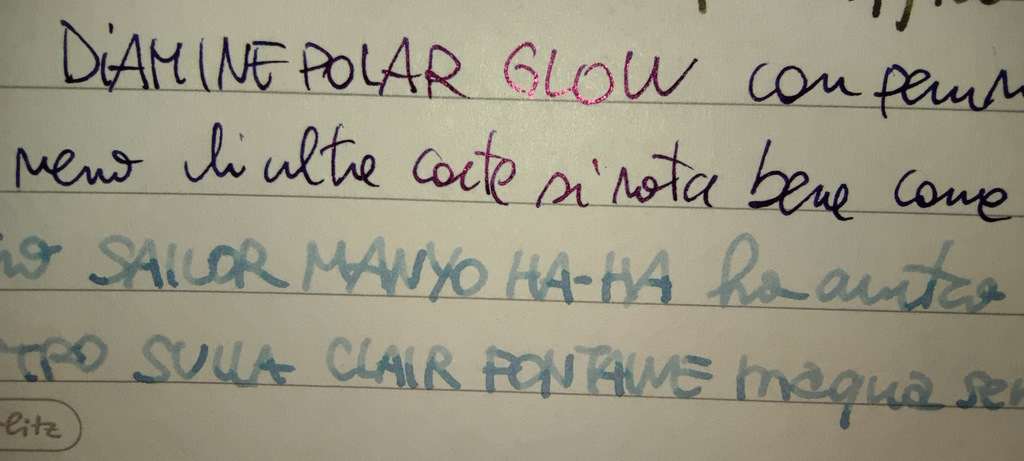 DIAMINE POLAR GLOW con penn
meno di altre carte si nota bene come
no SAILOR MANYO HA-HA ha anitra
TRO SULLA CLAIR FONTAINE magna ser
litz